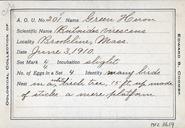 A. O. U. No. 201 Green Heron
Scientific Name Butorides virescens
Locality Brookline, Mass.
Date June 3, 1910.
Set Mark 4 Incubation slight
No. of Eggs in Set 4 Identity many birds
Nest in a tree, 15 ft. up made
of sticks a mere platform
OOLOGICAL COLLECTION OF